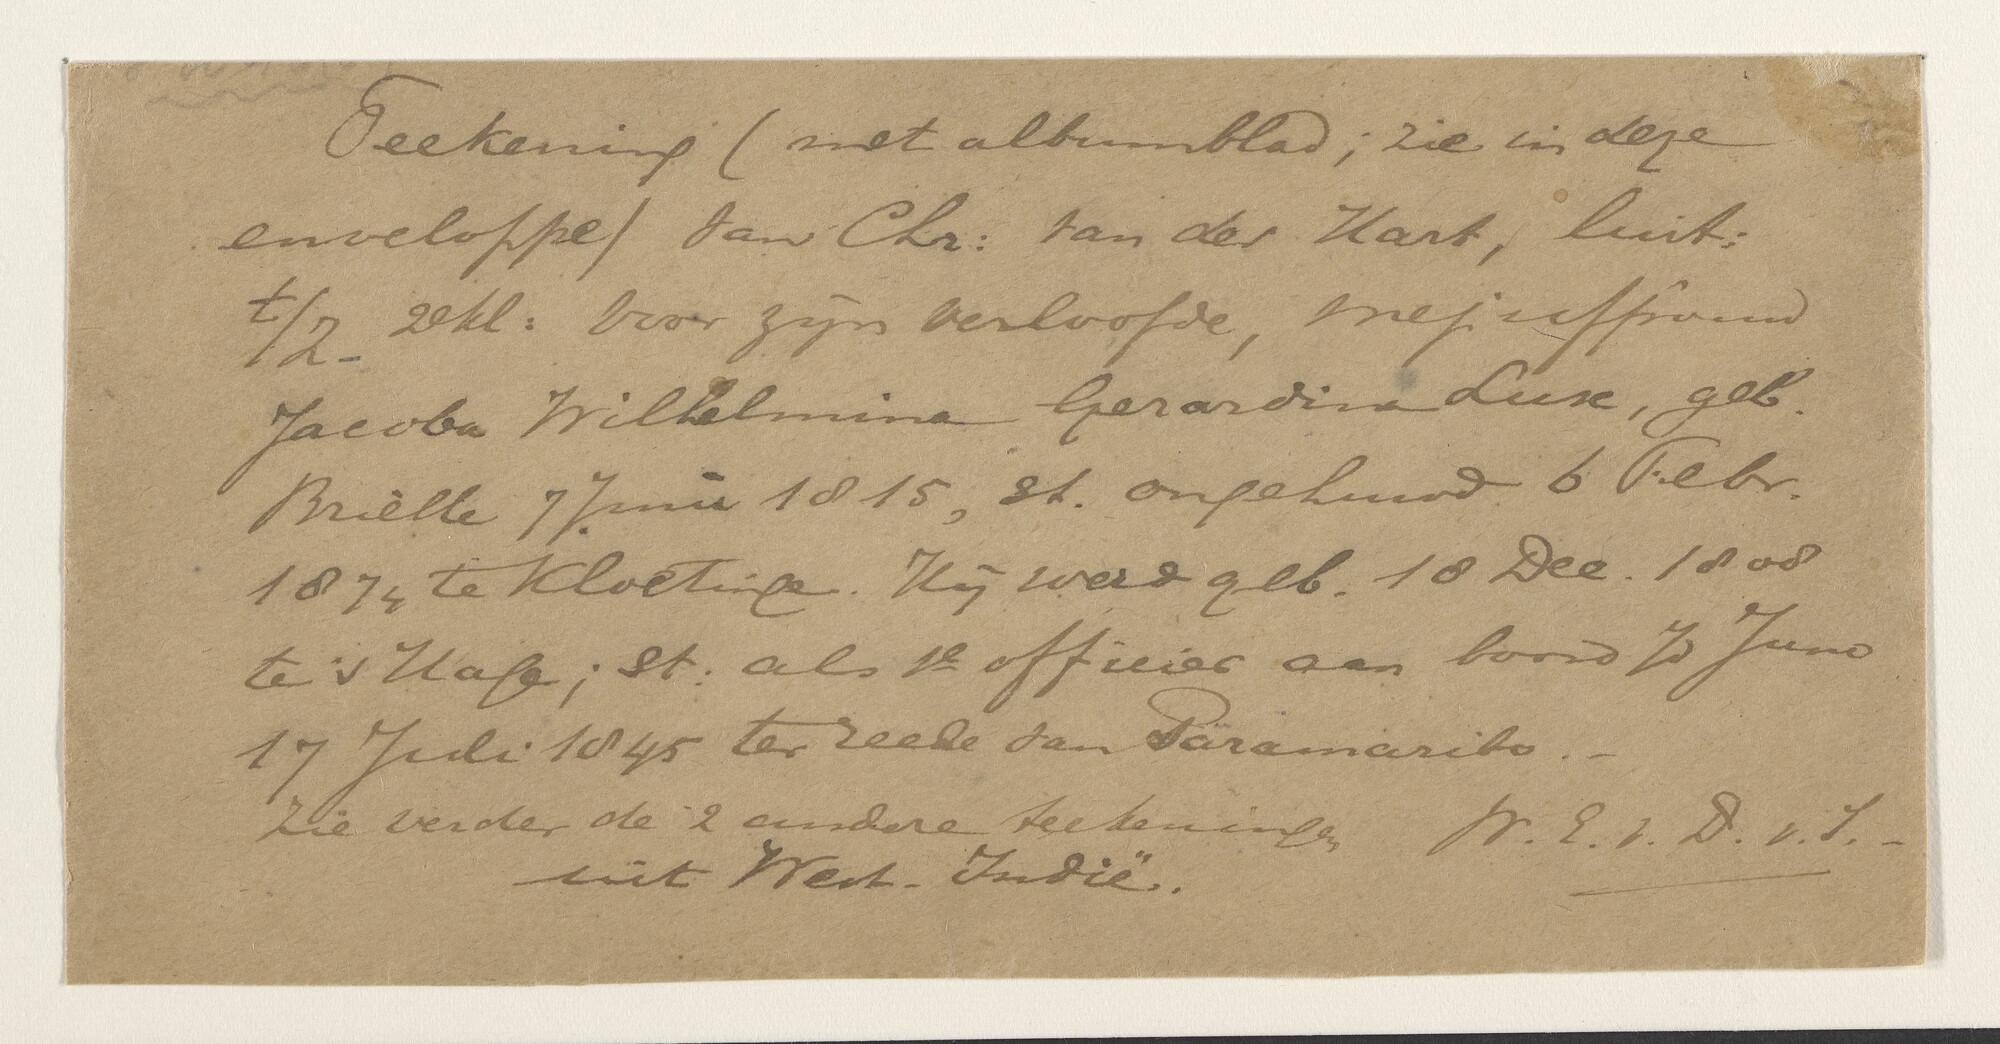 Teekening (met albumblad; zie in deze
enveloppe) van Chr: van der Hart, luit:
t/Z 2e kl: voor zijn verloofde, mejuffrouw
Jacoba Wilhelmina Gerardina Luse, geb.
Brielle 7 Juni 1815, st. ongehuwd 6 Febr.
1874 te Kloetinge. Hij werd geb. 18 Dec. 1808
te 's Hage; st. als 1e officier aan boord Juno
17 Juli 1845 ter reede van Paramaribo. -
Zie verder de 2 andere teekeningen W. E. v. D. v. S. -
uit West-Indië.